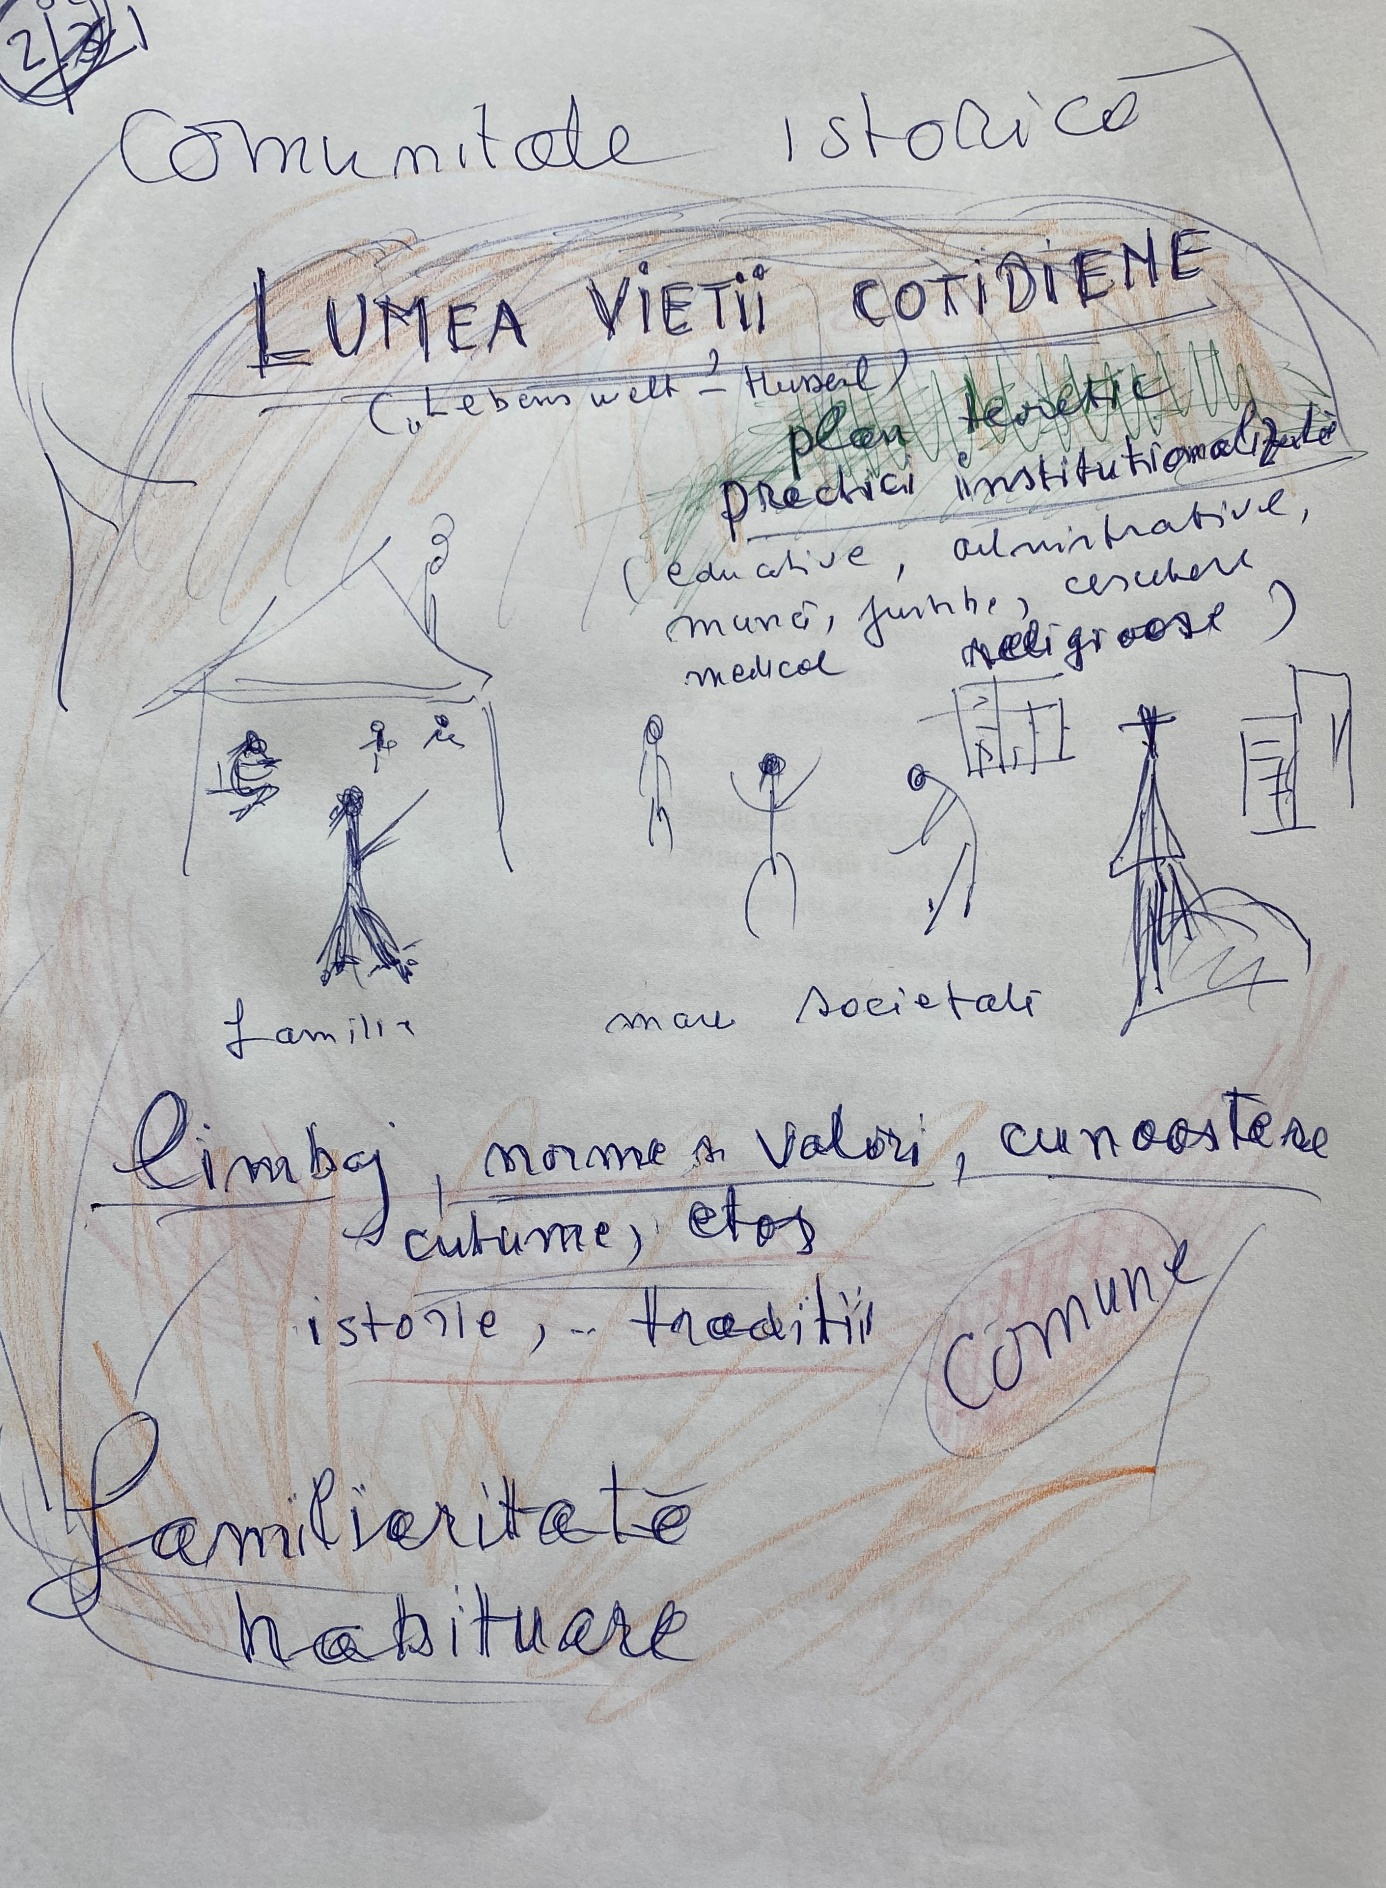 Comunitate istorica
LUMEA VIEȚII COTIDIENE
("Lebenswelt" – Husserl)
plan teoretic
practici institutionalizate
(educative, administrative,
muncă, juridice, cercetare
medical religioase)
familia mari societati
limbaj, norme si valori, cunoastere
cutume, etos
istorie, .. traditii
Comune
familiaritate
habituare